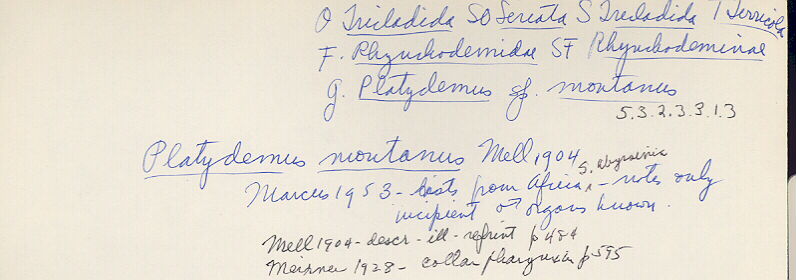 O Tricladida SO Sereata S Trecladida T Terricola
F. Rhynchodemidae SF Rhynchodeminae
g. Platydemus sp. montanus
5.3.2.3.3.1.3
Platydemus montanus Mell 1904
S. Abyssinia
Marcus 1953 - lists from Africa ^ - notes only
incipient ♂ organs known.
Mell 1904 - descr - ill - reprint p 484
Meixner 1928 - collar pharynx in p 595